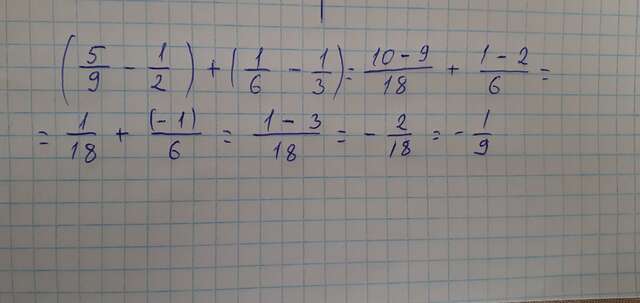 (5/9 - 1/2) + (1/6 - 1/3) = (10 - 9)/18 + (1 - 2)/6 =
= 1/18 + (-1)/6 = (1 - 3)/18 = - 2/18 = - 1/9